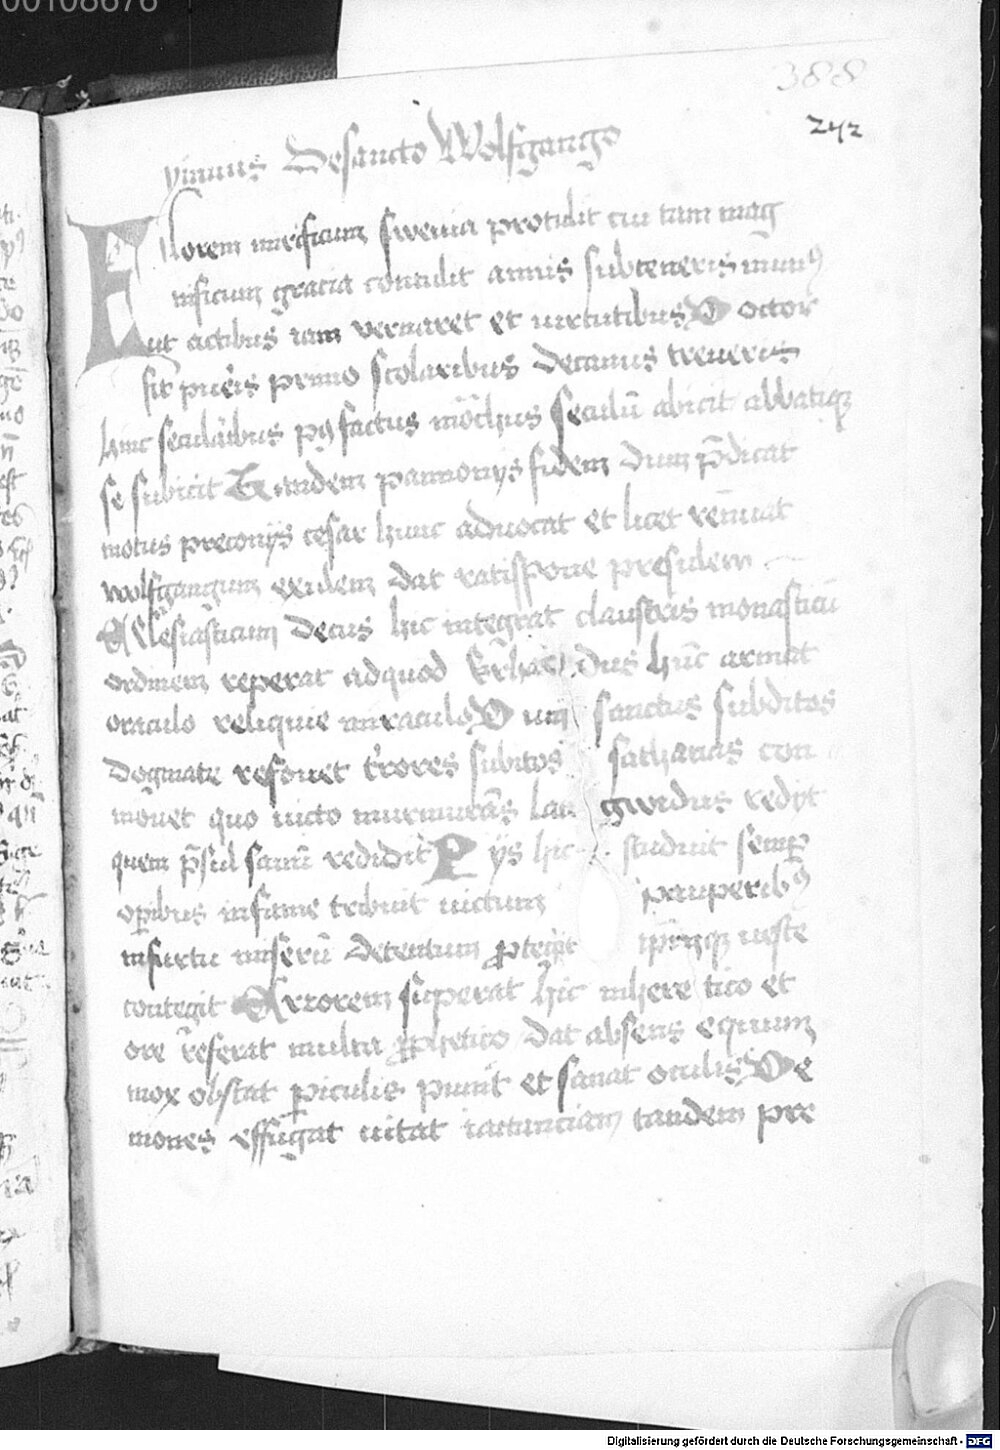 00108676
388
242
ymnus De sancto Wolfgango
Florem mirificum swevia protulit cui tam mag
nificum gracia contulit annis sub teneris munꝰ
ut actibus iam vernaret et virtutibus Doctor
fit pueris primo scolaribus decanus treueris
hinc seculāibus pꝰ factus mōchus seculū abicit abbatiqꝫ
se subicit Tandem pannonijs fidem dum p̄dicat
motus preconijs cesar hunc aduocat et licet rennuat
wolfgangum exulem dat ratispone presulem
Ecclesiasticum decus hic integrat claustris monasticū
ordinem reperat ad quod dus hūc armat
oraculo reliquie miraculo Dum sanctus subditos
dogmate refouet t'rores subitos sathanas con
mouet quo victo murmurās lan gwidus redijt
quem p̄sul sanū redidit Pijs hic studuit semꝑ
oꝑibus in fame tribuit victum pauperibꝰ
in furtu miserū detentum ꝓtegit ip̄mqꝫ veste
contegit Errorem superat hic in heretico et
ore referat multa ꝓphetico dat absens equum
mox obstat ꝑiculis punit et sanat oculis De
mones effugat vitat iactanciam tandem pre
Digitalisierung gefördert durch die Deutsche Forschungsgemeinschaft - DFG